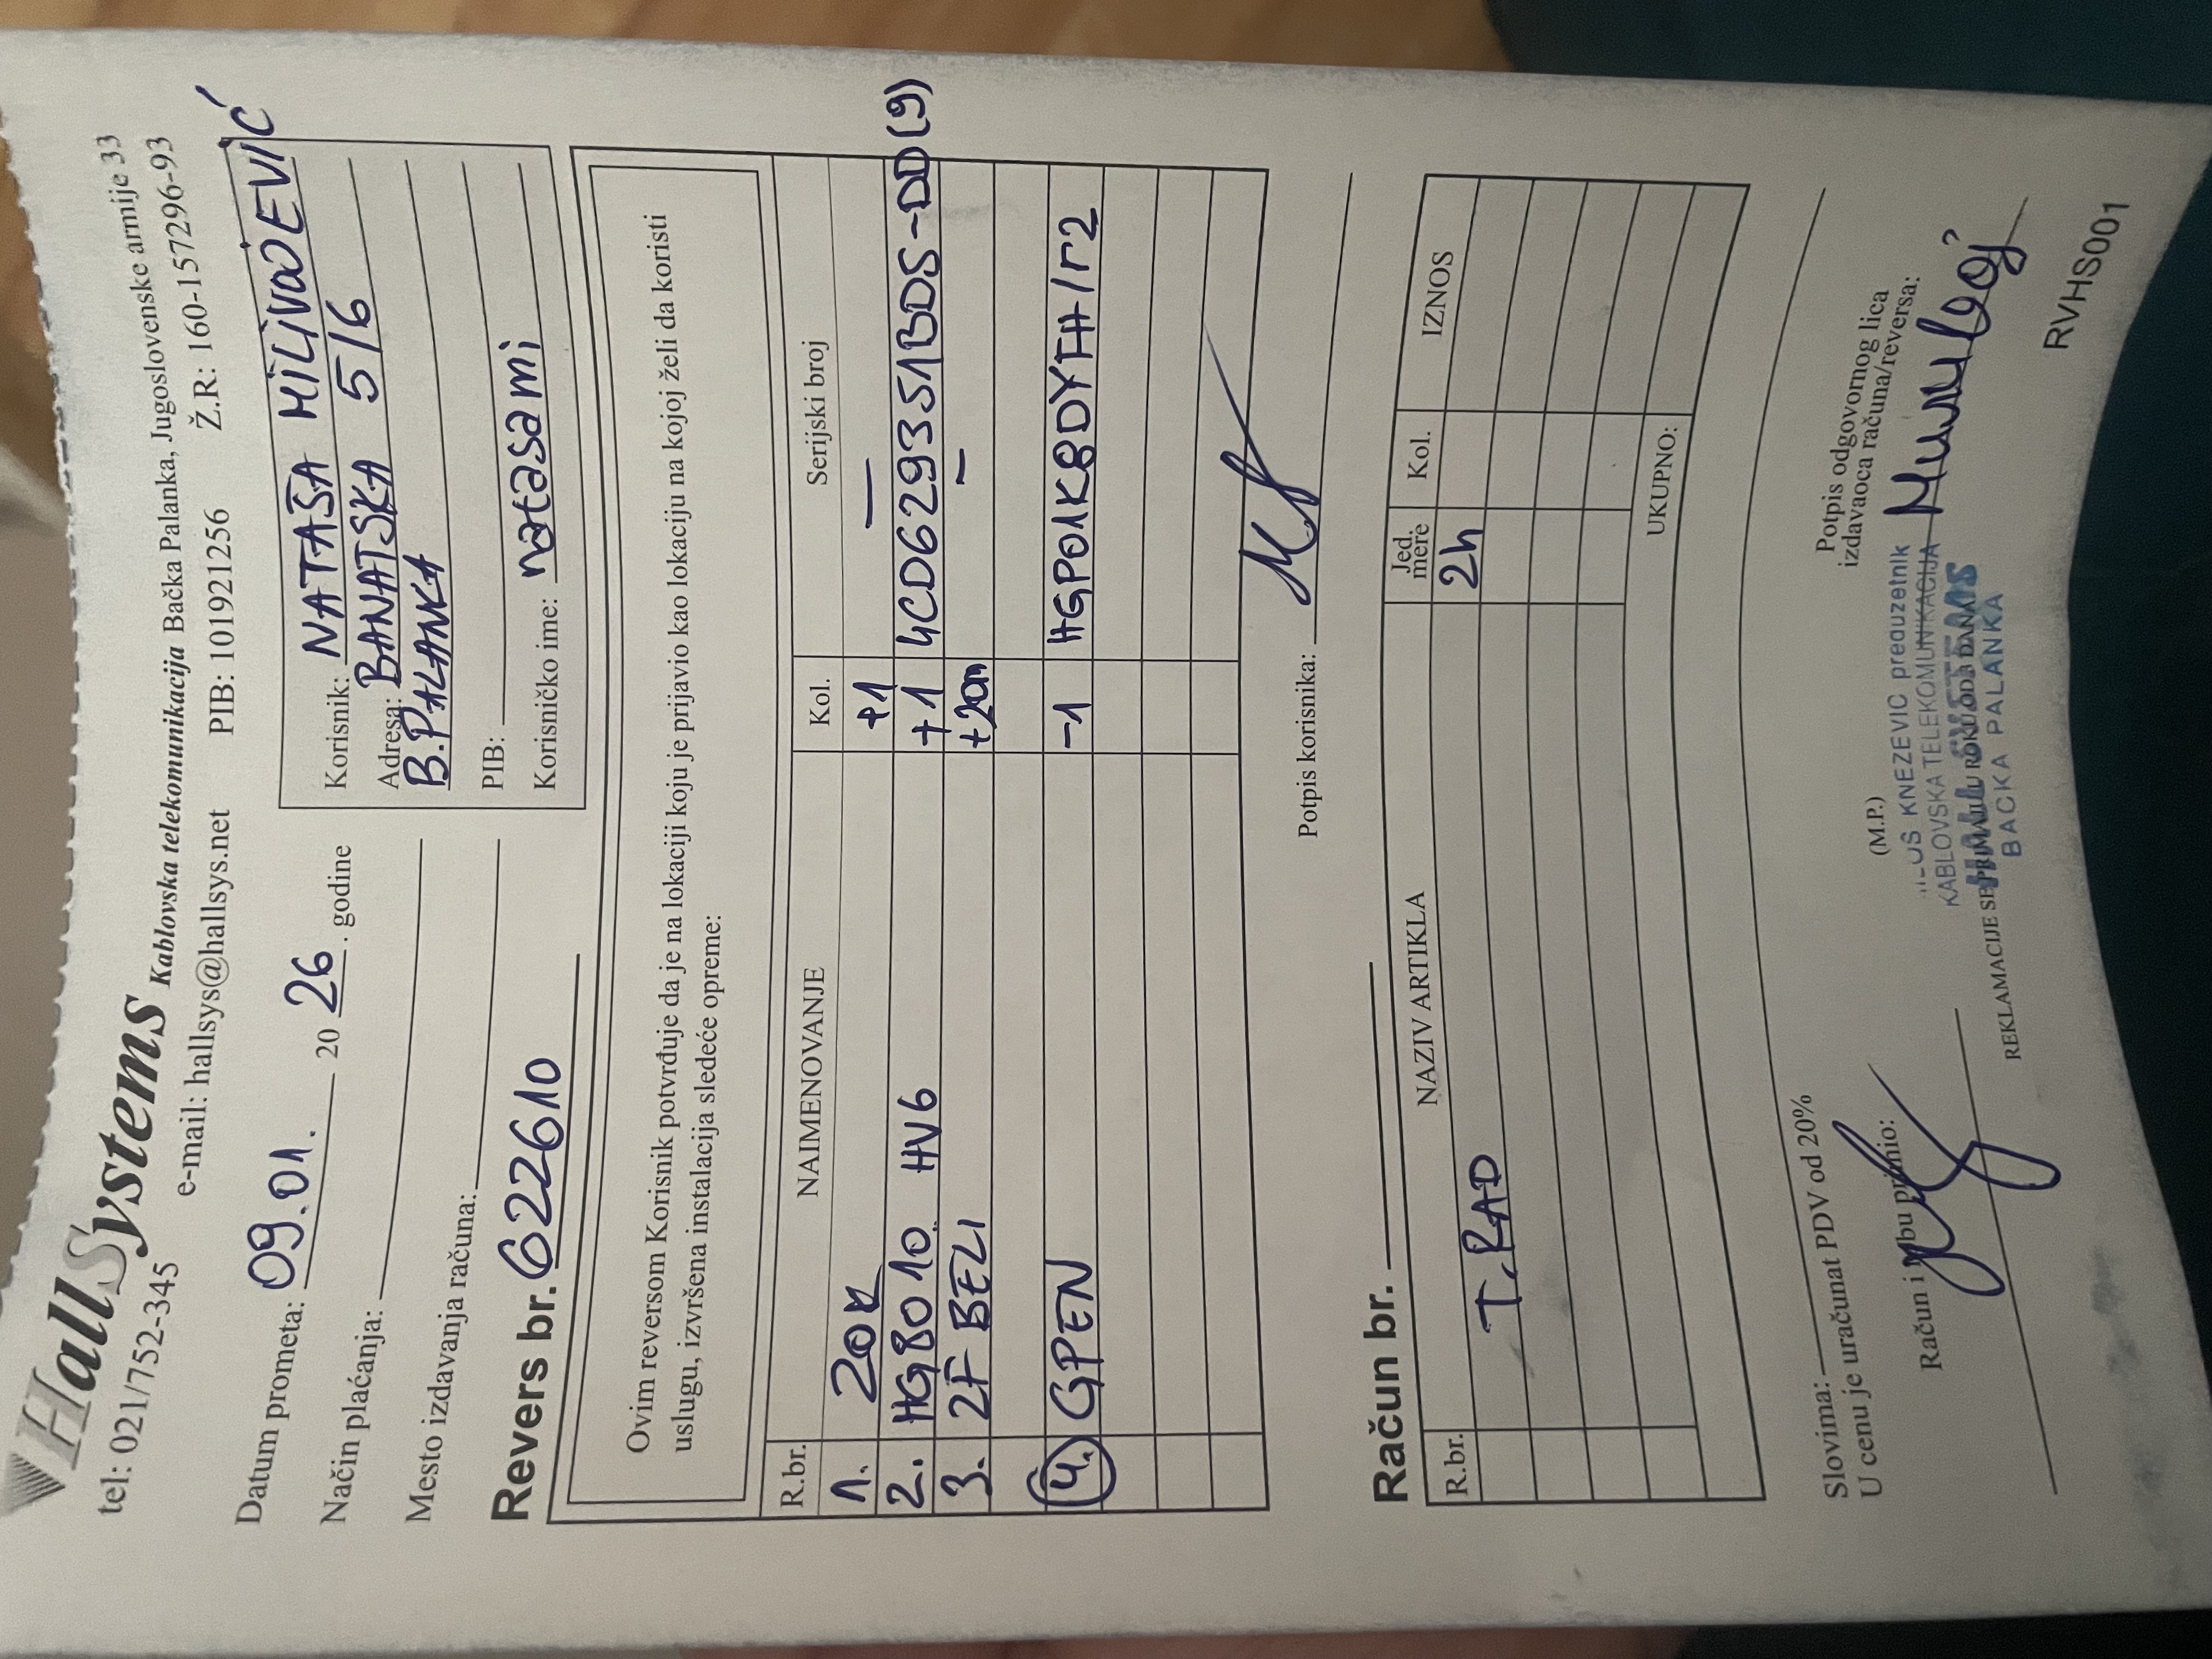 HallSystems Kablovska telekomunikacija Bačka Palanka, Jugoslovenske armije 33
tel: 021/752-345 e-mail: hallsys@hallsys.net PIB: 101921256 Ž.R: 160-157296-93
Datum prometa: 09.01. 20 26. godine
Način plaćanja:
Mesto izdavanja računa:
Korisnik: NATAŠA MILIVOJEVIĆ
Adresa: BANATSKA 5/6
B.PALANKA
PIB:
Korisničko ime: natasami
Revers br. 622610
Ovim reversom Korisnik potvrđuje da je na lokaciji koju je prijavio kao lokaciju na kojoj želi da koristi
uslugu, izvršena instalacija sledeće opreme:
R.br. NAIMENOVANJE Kol. Serijski broj
1. +1 —
2. HG8010 HV6 +1 4CD629351BDS-DD(9)
3. 2F BELI —
4. GPEN -1 HGP01K8DYFH/r2
Potpis korisnika:
Račun br.
R.br. NAZIV ARTIKLA Jed. mere Kol. IZNOS
T. RAD 2h
UKUPNO:
Slovima:
U cenu je uračunat PDV od 20%
Račun i robu primio:
(M.P.)
Potpis odgovornog lica
izdavaoca računa/reversa:
KNEZEVIC preduzetnik
KABLOVSKA TELEKOMUNIKACIJA
HALL SYSTEMS
BACKA PALANKA
REKLAMACIJE SE PRIMAJU U ROKU OD 3 DANA
RVHS001